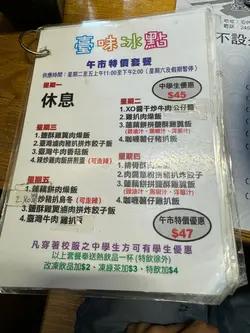 臺味冰點
午市特價套餐
供應時間：星期二至五上午11:00至下午2:00（星期六及假期暫停）
中學生優惠
$45
星期一
休息
星期二
1. XO醬干炒牛肉公仔麵
2. 雞扒肉燥飯
3. 蓮藕餅拼鹽酥雞翼飯
4. 咖喱薯仔雞扒飯
星期三
1. 鹽酥雞翼肉燥飯
2. 臺灣滷肉豬扒拼炸餃子飯
3. 臺灣牛肉薯菇飯
4. 辣炒雞肉飯拼煎蛋（可走辣）
星期四
1. 排骨酥肉燥飯
星期五
1. 蓮藕餅肉燥飯
2. 炒豬扒烏冬（可走辣）
3. 鹽酥雞翼滷肉拼炸餃子飯
4. 臺灣牛肉 雞扒飯
4. 咖喱薯仔雞扒飯
午市特價優惠
$47
凡穿著校服之中學生方可有學生優惠
以上套餐奉送熱飲品一杯（特飲除外）
改凍飲品加$2、凍綠茶加$3、特飲加$4